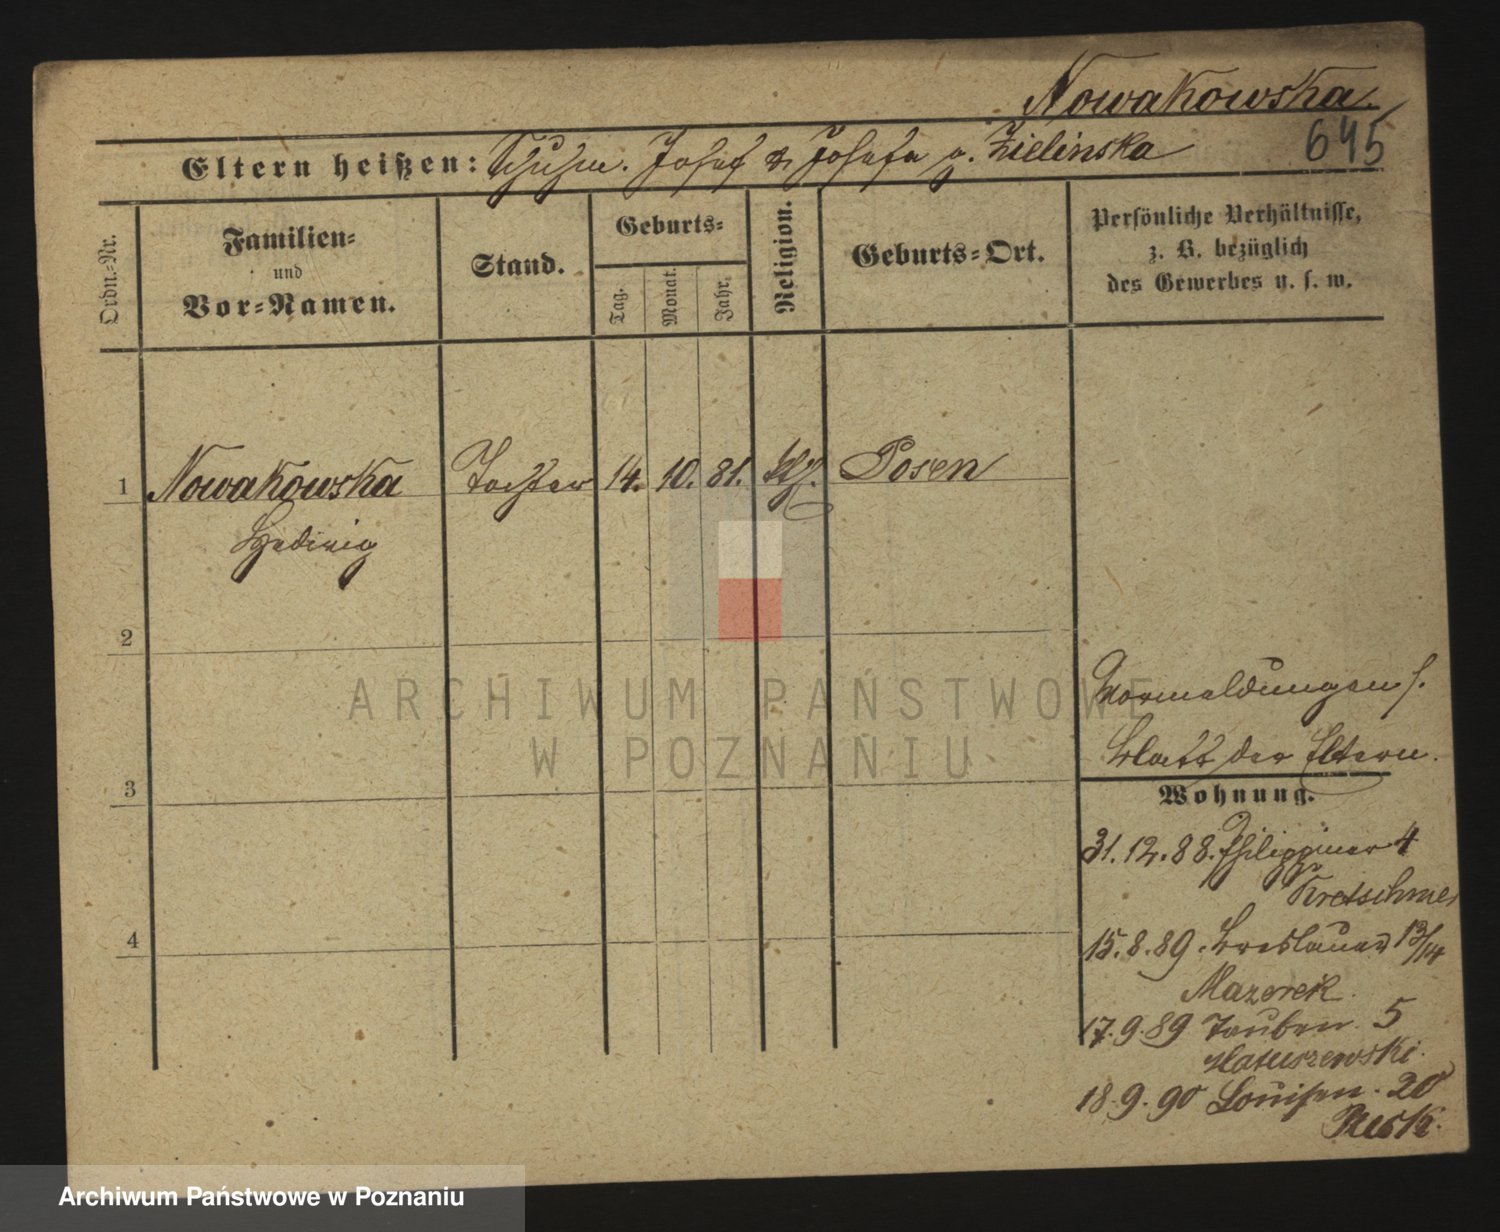 Nowakowska.
645
Eltern heißen: Schuhm. Josef & Josefa g. Zielinska
Ordn.-Nr.
Familien-
und
Vor-Namen.
Stand.
Geburts-
Tag.
Monat.
Jahr.
Religion.
Geburts-Ort.
Persönliche Verhältnisse,
z. B. bezüglich
des Gewerbes u. s. w.
1 Nowakowska Tochter 14. 10. 81. kth. Posen
Hedwig
2
Vormeldungen s.
Blatt der Eltern.
3
Wohnung.
31.12.88. Philippiner 4
Kretschmer
4
15.8.89. Breslauer 13/14
Mazerek.
17.9.89 Tauben. 5
Matuszewski.
18.9.90 Louisen. 20
ARCHIWUM PAŃSTWOWE
W POZNANIU
Archiwum Państwowe w Poznaniu